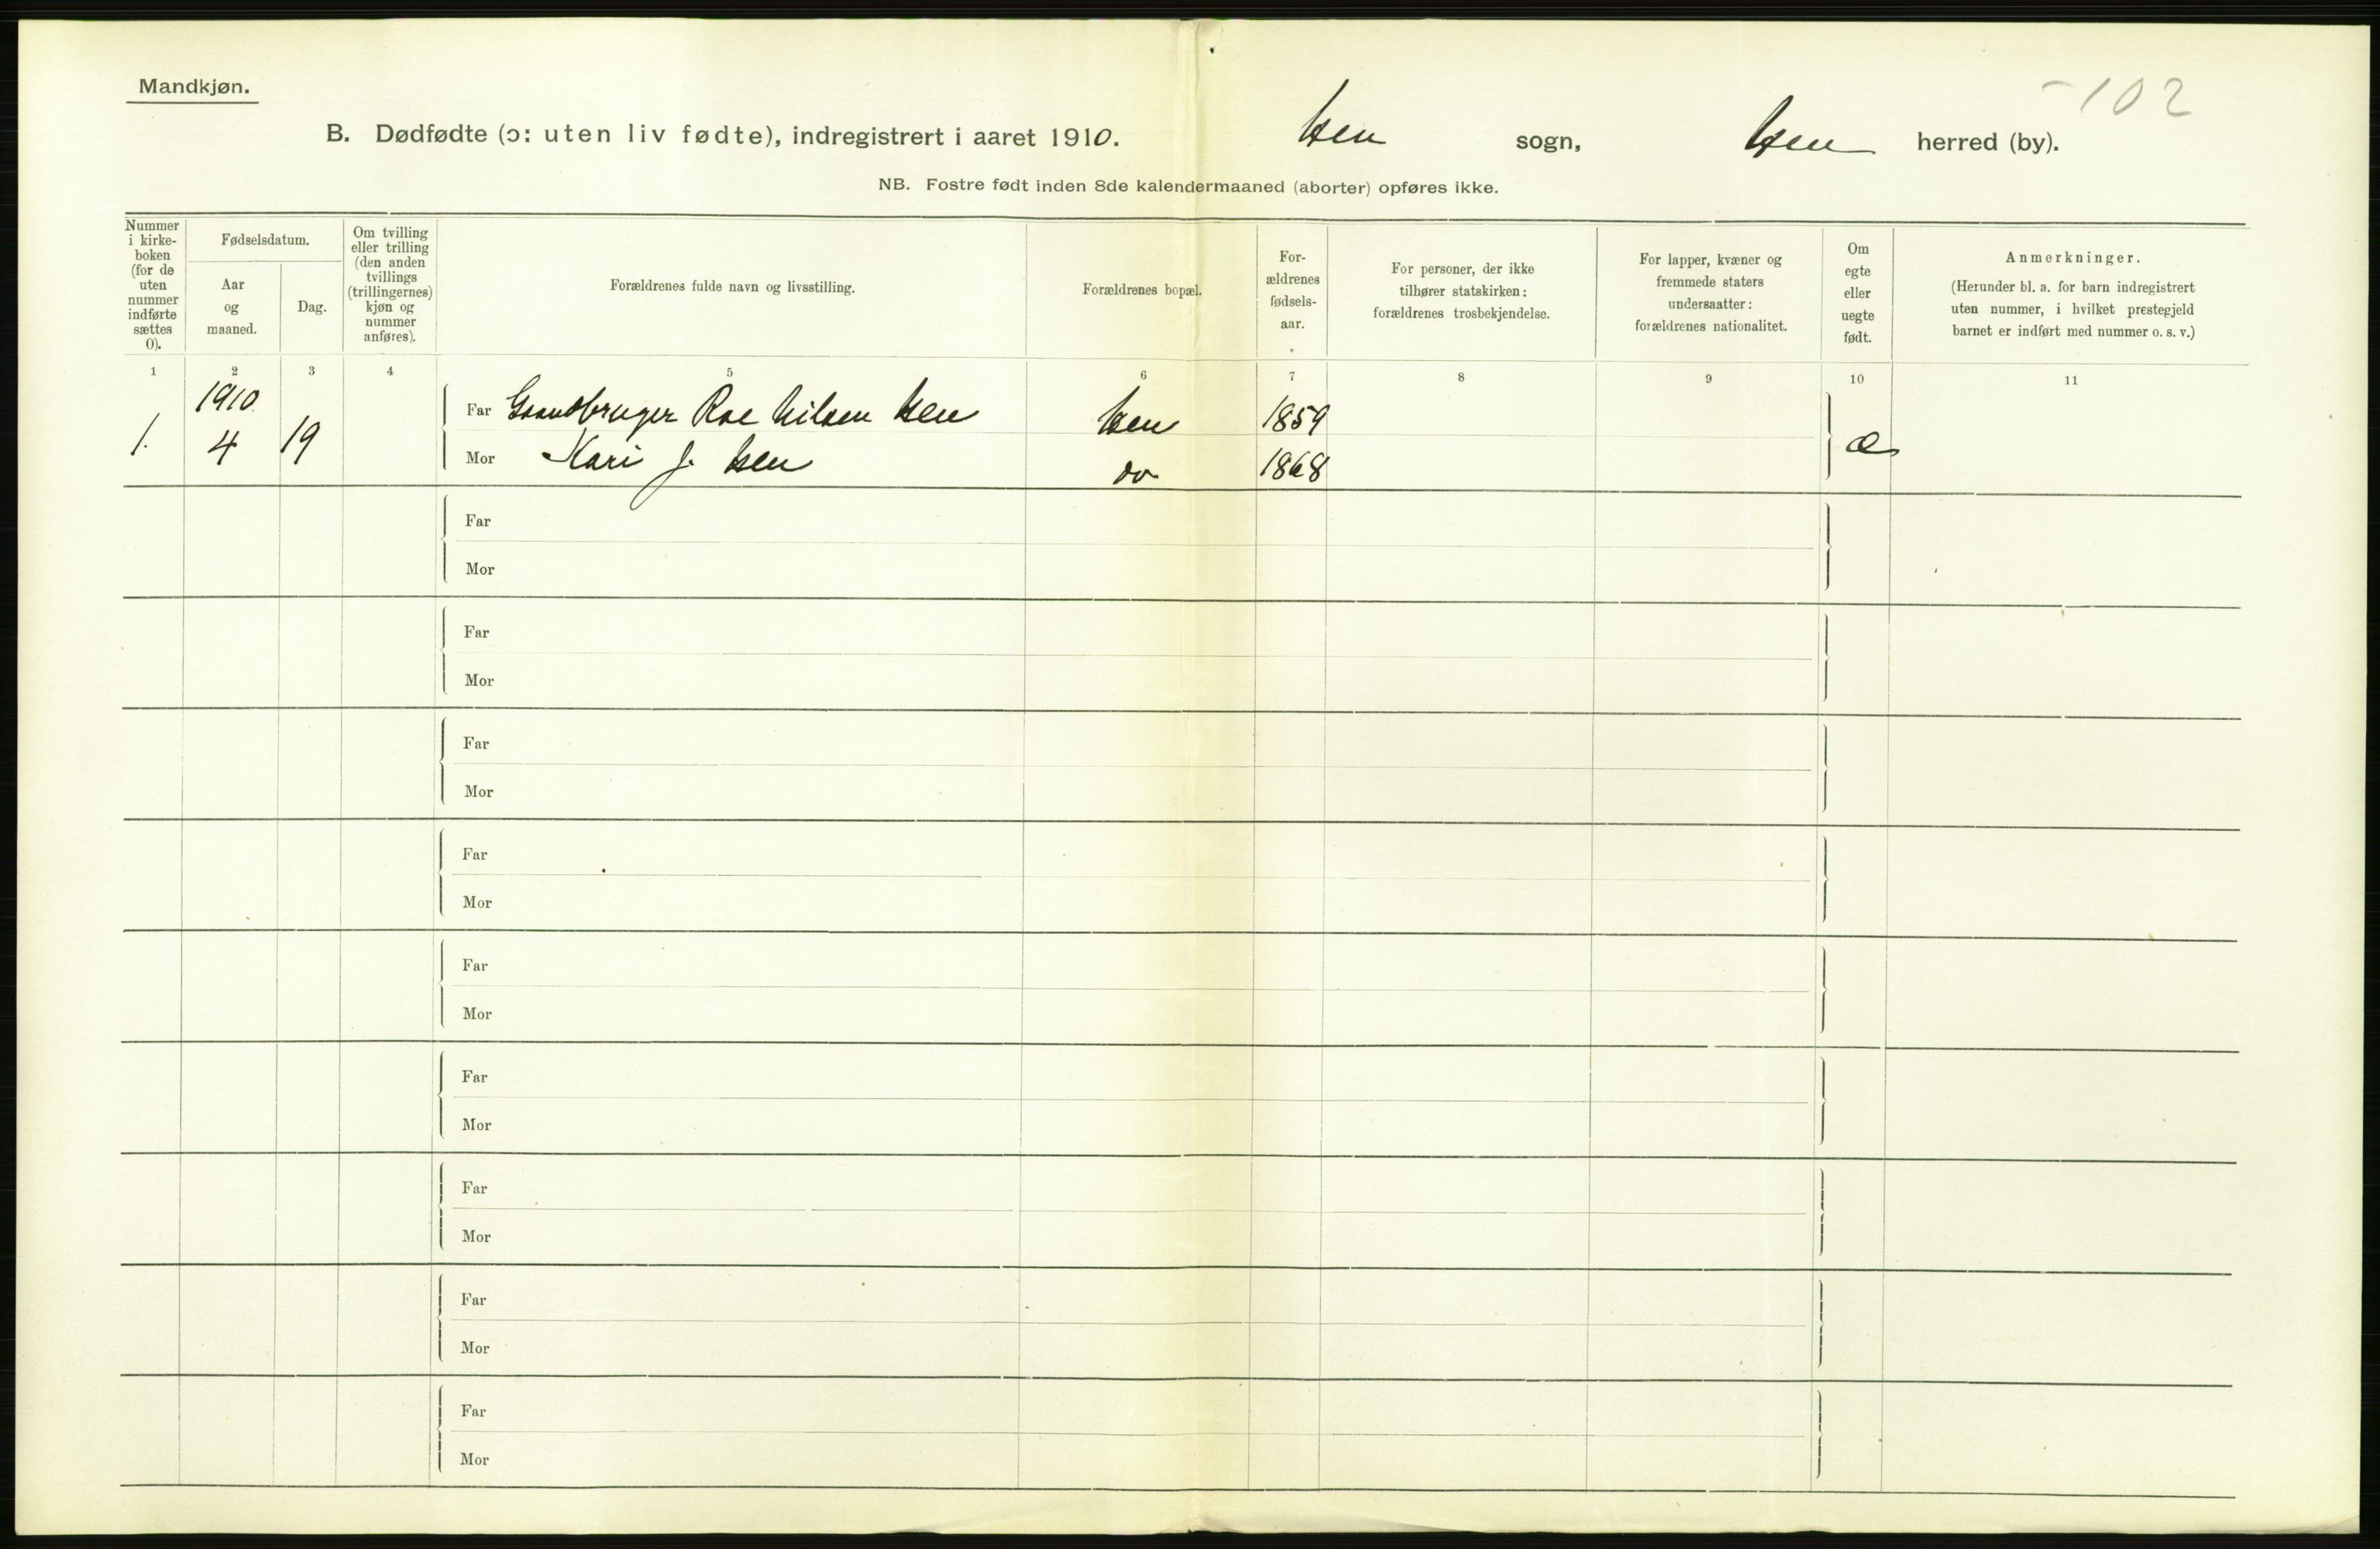 Mandkjøn.
-102
B. Dødfødte (ɔ: uten liv fødte), indregistrert i aaret 1910. Hen sogn, Hen herred (by).
NB. Fostre født inden 8de kalendermaaned (aborter) opføres ikke.
Nummer
i kirke-
boken
(for de
uten
nummer
indførte
sættes
0).
Fødselsdatum.
Aar
og
maaned.
Dag.
Om tvilling
eller trilling
(den anden
tvillings
(trillingernes)
kjøn og
nummer
anføres).
Forældrenes fulde navn og livsstilling.
Forældrenes bopæl.
For-
ældrenes
fødsels-
aar.
For personer, der ikke
tilhører statskirken:
forældrenes trosbekjendelse.
For lapper, kvæner og
fremmede staters
undersaatter:
forældrenes nationalitet.
Om
egte
eller
uegte
født.
Anmerkninger.
(Herunder bl. a. for barn indregistrert
uten nummer, i hvilket prestegjeld
barnet er indført med nummer o. s. v.)
1 2 3 4 5 6 7 8 9 10 11
1910
1. 4 19
Far Gaardbruger Roe Nilsen Hen Hen 1859
Mor Kari J. Hen do 1868
Æ
Far
Mor
Far
Mor
Far
Mor
Far
Mor
Far
Mor
Far
Mor
Far
Mor
Far
Mor
Far
Mor